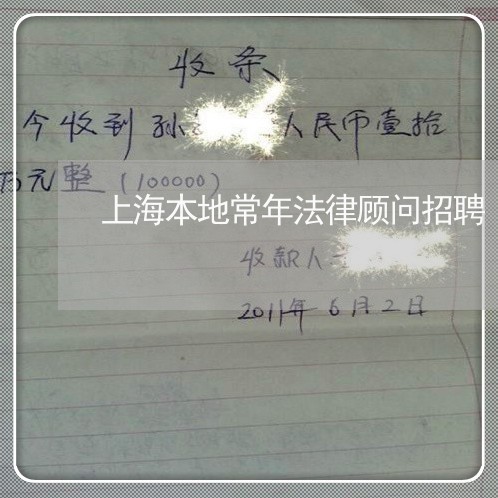 收条
今收到孙 人民币壹拾
万元整（100000）
上海本地常年法律顾问招聘
收款人
2011年6月2日